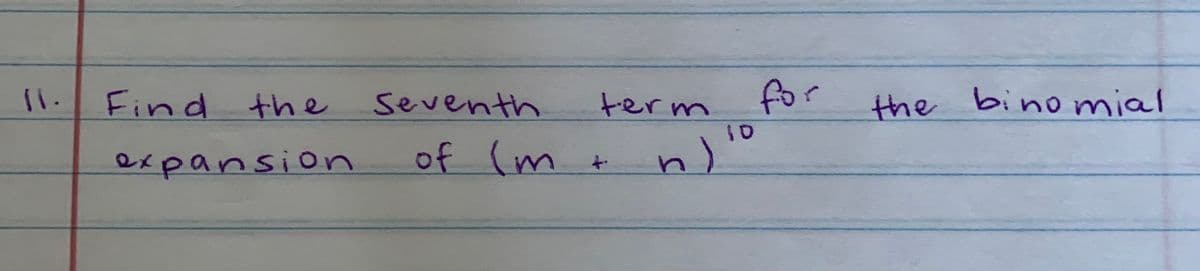 11. Find the seventh term for the binomial
expansion of (m + n)¹⁰